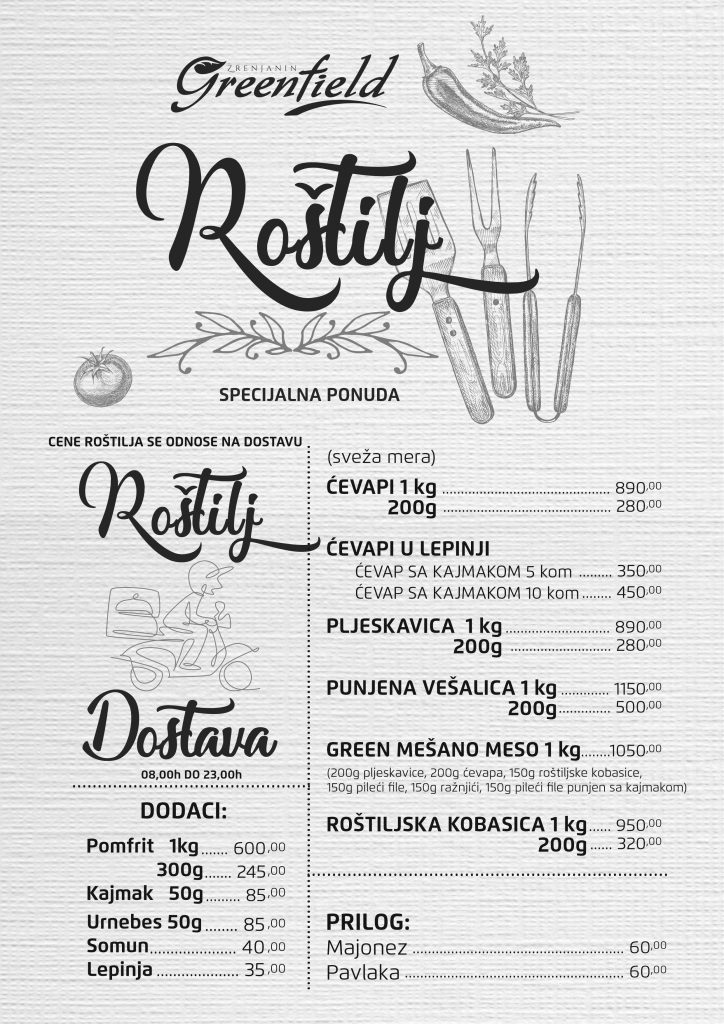 ZRENJANIN
Greenfield
Roštilj
SPECIJALNA PONUDA
CENE ROŠTILJA SE ODNOSE NA DOSTAVU
Roštilj
Dostava
08,00h DO 23,00h
DODACI:
Pomfrit 1kg ....... 600,00
300g ....... 245,00
Kajmak 50g ......... 85,00
Urnebes 50g ........ 85,00
Somun ..................... 40,00
Lepinja .................... 35,00
(sveža mera)
ĆEVAPI 1 kg ........................................ 890,00
200g ........................................ 280,00
ĆEVAPI U LEPINJI
ĆEVAP SA KAJMAKOM 5 kom ......... 350,00
ĆEVAP SA KAJMAKOM 10 kom ....... 450,00
PLJESKAVICA 1 kg ......................... 890,00
200g ........................ 280,00
PUNJENA VEŠALICA 1 kg ............ 1150,00
200g ............. 500,00
GREEN MEŠANO MESO 1 kg ....... 1050,00
(200g pljeskavice, 200g ćevapa, 150g roštiljske kobasice,
150g pileći file, 150g ražnjići, 150g pileći file punjen sa kajmakom)
ROŠTILJSKA KOBASICA 1 kg ..... 950,00
200g ..... 320,00
PRILOG:
Majonez .................................................. 60,00
Pavlaka .................................................... 60,00